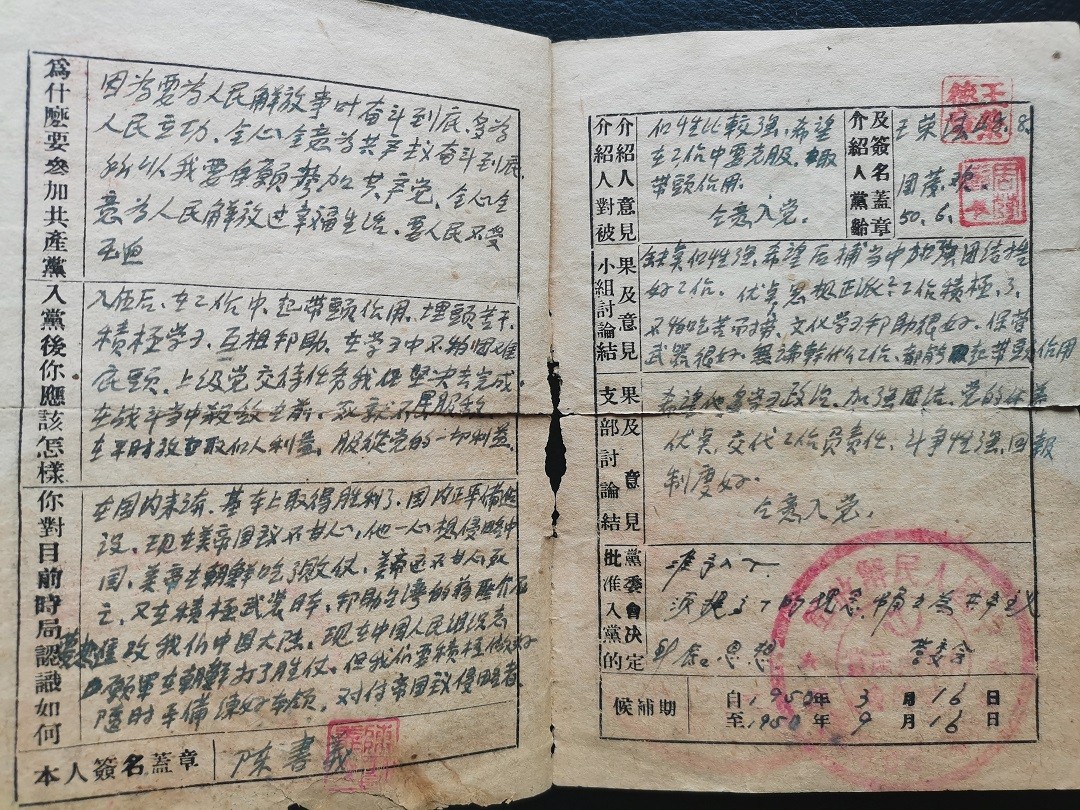 為什麼要參加共產黨
因为要为人民解放事叶奋斗到底,
人民立功,全心全意为共产主奋斗到底
所以我要自願参加共产党,全心全
意为人民解放过幸福生活,要人民不受
压迫
入黨後你應該怎樣
入伍后,在工作中,起带頭作用,埋頭苦干,
積極学习,互相邦助,在学习中不怕困难
底頭,上级党交待任务我坚决去完成,
在战斗当中
服從党的一切利益
你對目前時局認識如何
在国内来讲,基本上取得胜利了,国内正準備建
設,現在美帝国主不甘心,他一心想侵略中
国,美帝在朝鮮吃了败仗,美帝还不甘心死
亡,又在積極武装日本,邦助台湾的蒋介石
進攻我们中国大陆,现在中国人民组织志
願軍在朝鮮打了胜仗,但我们要積極做好
随时準備練好本领,对付帝国主侵略者
本人簽名蓋章
陈書義
介紹人對被介紹人意見
个性比較强,希望
在工作中要克服,
带頭作用。
仝意入党。
介紹人黨齡及簽名蓋章
王荣 48.8.
周
50.6.
小組討論結果及意見
缺点个性强,希望后補当中加强团结搞
好工作。优点思想正派,工作積極,
不怕吃苦,文化学习邦助很好,保管
武器很好,無論幹什么工作,都能起带頭作用
支部討論結果及意見
希望他多学习政治,加强团结,党的
优点,交代工作负责任,斗争性强,回報
制度好。
仝意入党。
黨委會決定批准入黨的
准予入了
思想
黨委会
候補期
自1950年 3 月 16 日
至1950年 9 月 16 日